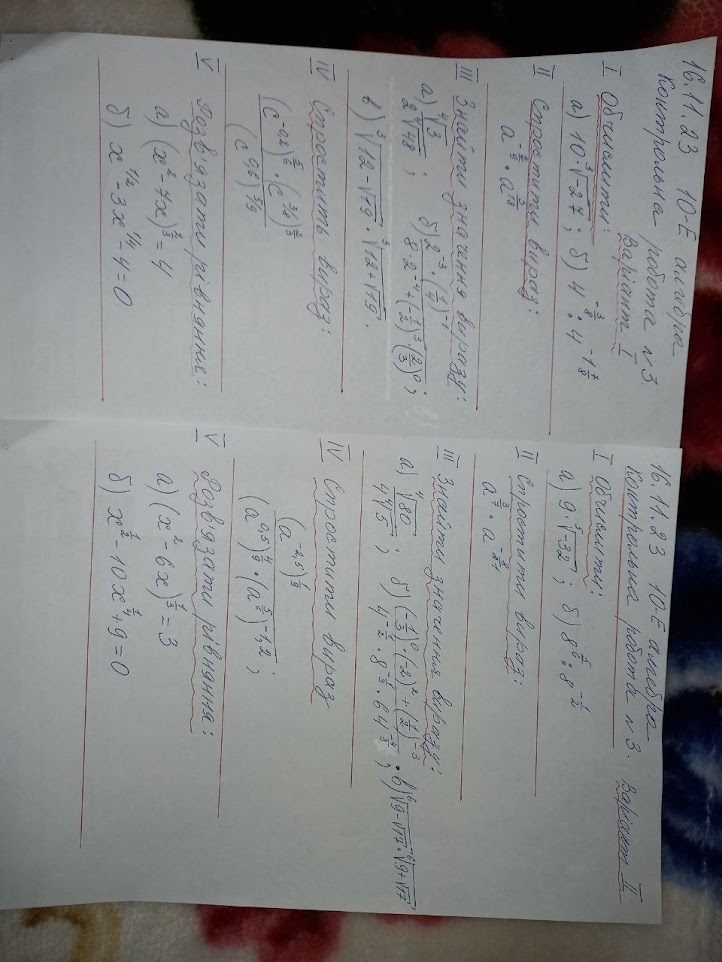 16.11.23 10-Е алгебра
Контрольна робота №3
Варіант I
I Обчислити:
а) 10·∛-27; б) 4^(-3/8) : 4^(-1 7/8)
II Спростити вираз:
a^(-2/9) · a^(5/18)
III Знайти значення виразу:
а) ∜3 / 2∜48; б) (2^(-3) · (1/4)^(-1)) / (8·2^(-4) + (-1/2)^3 · (2/3)^0);
в) ∛(12-√19) · ∛(12+√19).
IV Спростить вираз:
((c^(-0,2))^(5/6) · (c^(3/8))^(2/3)) / (c^(0,6))^(5/9)
V Розв'язати рівняння:
а) (x²-7x)^(2/3) = 4
б) x^(1/2) - 3x^(1/4) - 4 = 0
16.11.23 10-Е алгебра
Контрольна робота №3. Варіант II
I Обчислити:
а) 9·⁵√-32; б) 8^(5/6) : 8^(-1/2)
II Спростити вираз:
a^(3/7) · a^(-8/21)
III Знайти значення виразу:
а) ∜80 / 4∜5; б) ((-1/3)^0 · (-2)^2 + (1/2)^(-3)) / (4^(-1/2) · 8^(-1/3) · 64^(-4/3)); в) ⁶√(9-√17) · ⁶√(9+√17)
IV Спростити вираз
(a^(-2,5))^(1/9) / ((a^(0,5))^(4/9) · (a^(5/6))^(-1,2));
V Розв'язати рівняння:
а) (x²-6x)^(1/3) = 3
б) x^(1/2) - 10x^(1/4) + 9 = 0